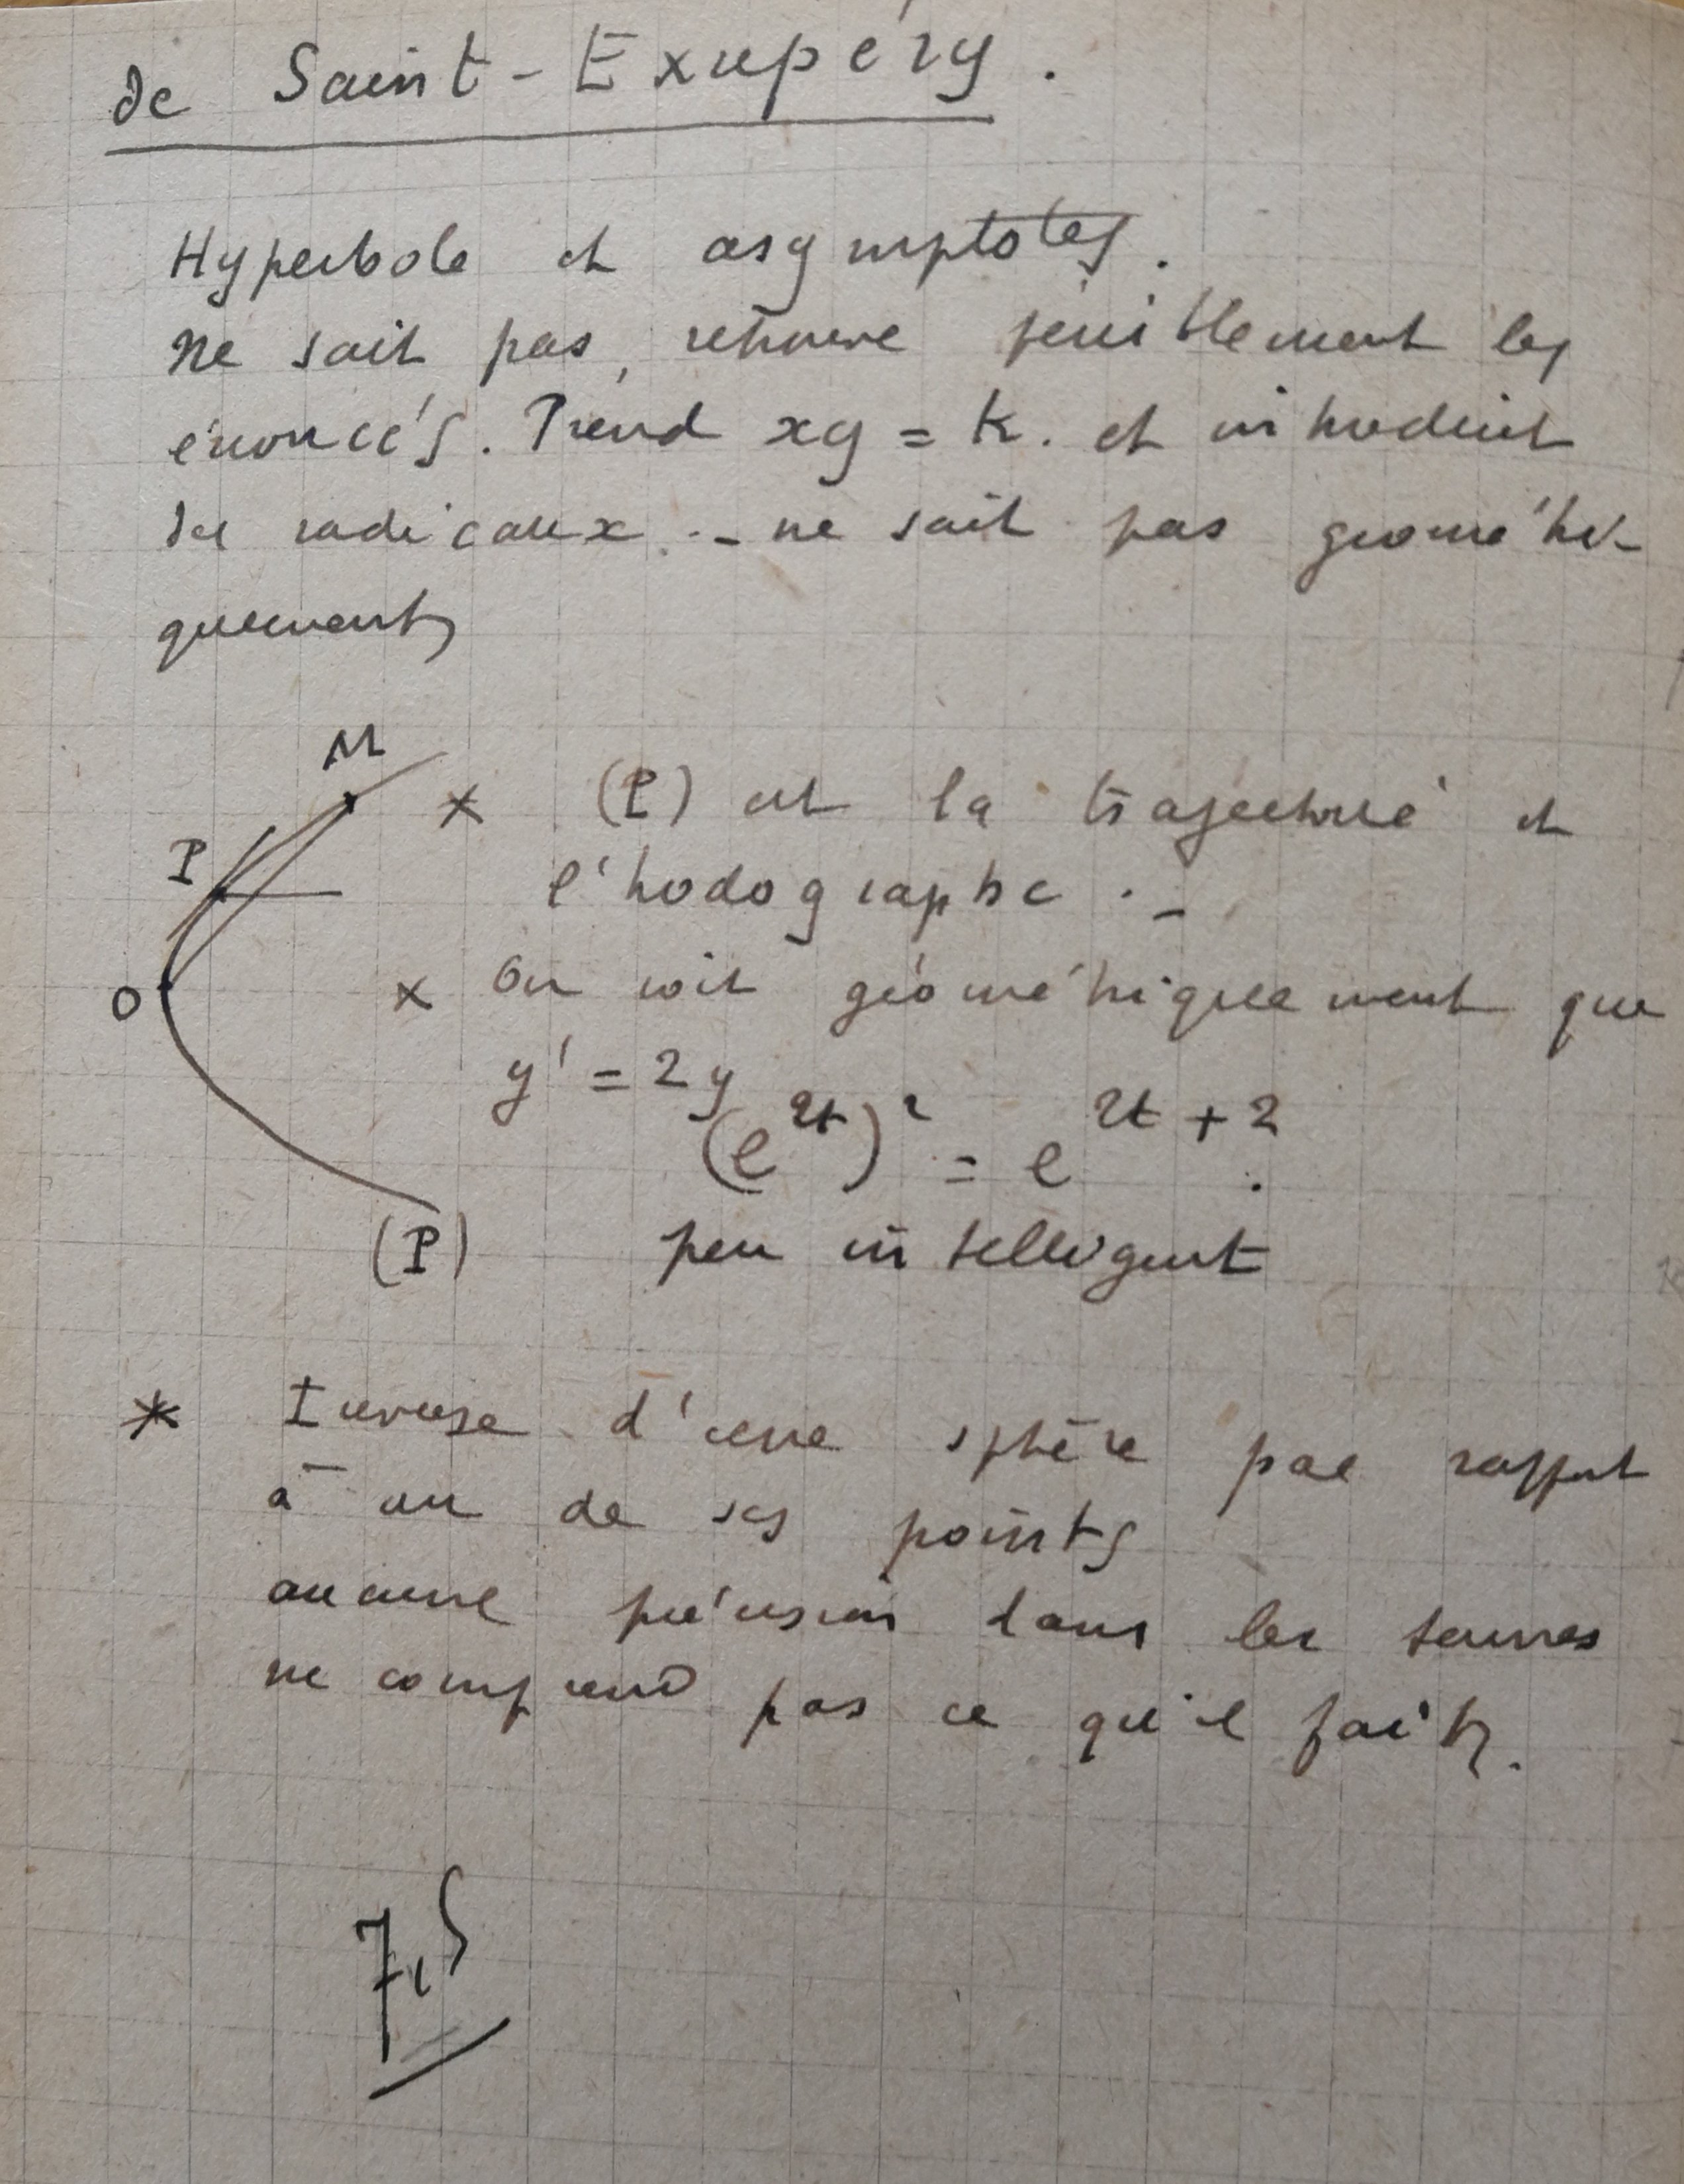 de Saint-Exupéry.
Hyperbole et asymptotes.
Ne sait pas, retrouve péniblement les
énoncés. Prend xy = k. et introduit
des radicaux. - ne sait pas géométri-
quement
M
× (P) est la trajectoire et
P
l'hodographe . -
O
× On voit géométriquement que
y' = 2y
(e^2t)^2 = e^2t + 2 .
(P) peu intelligent
* Inverse d'une sphère par rapport
à un de ses points
aucune précision dans les termes
ne comprend pas ce qu'il fait.
7,5